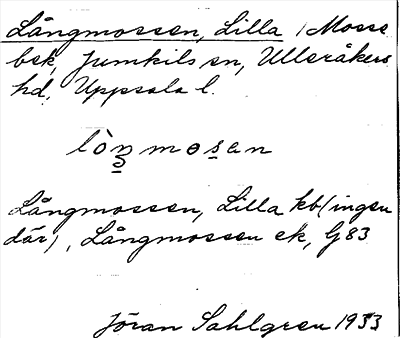 Långmossen, Lilla, Mosse
bek, Jumkils sn, Ulleråkers
hd, Uppsala l.
lò̀ŋmosan
Långmossen, Lilla kb (ingen
där), Långmossen ek, G 83
Jöran Sahlgren 1933